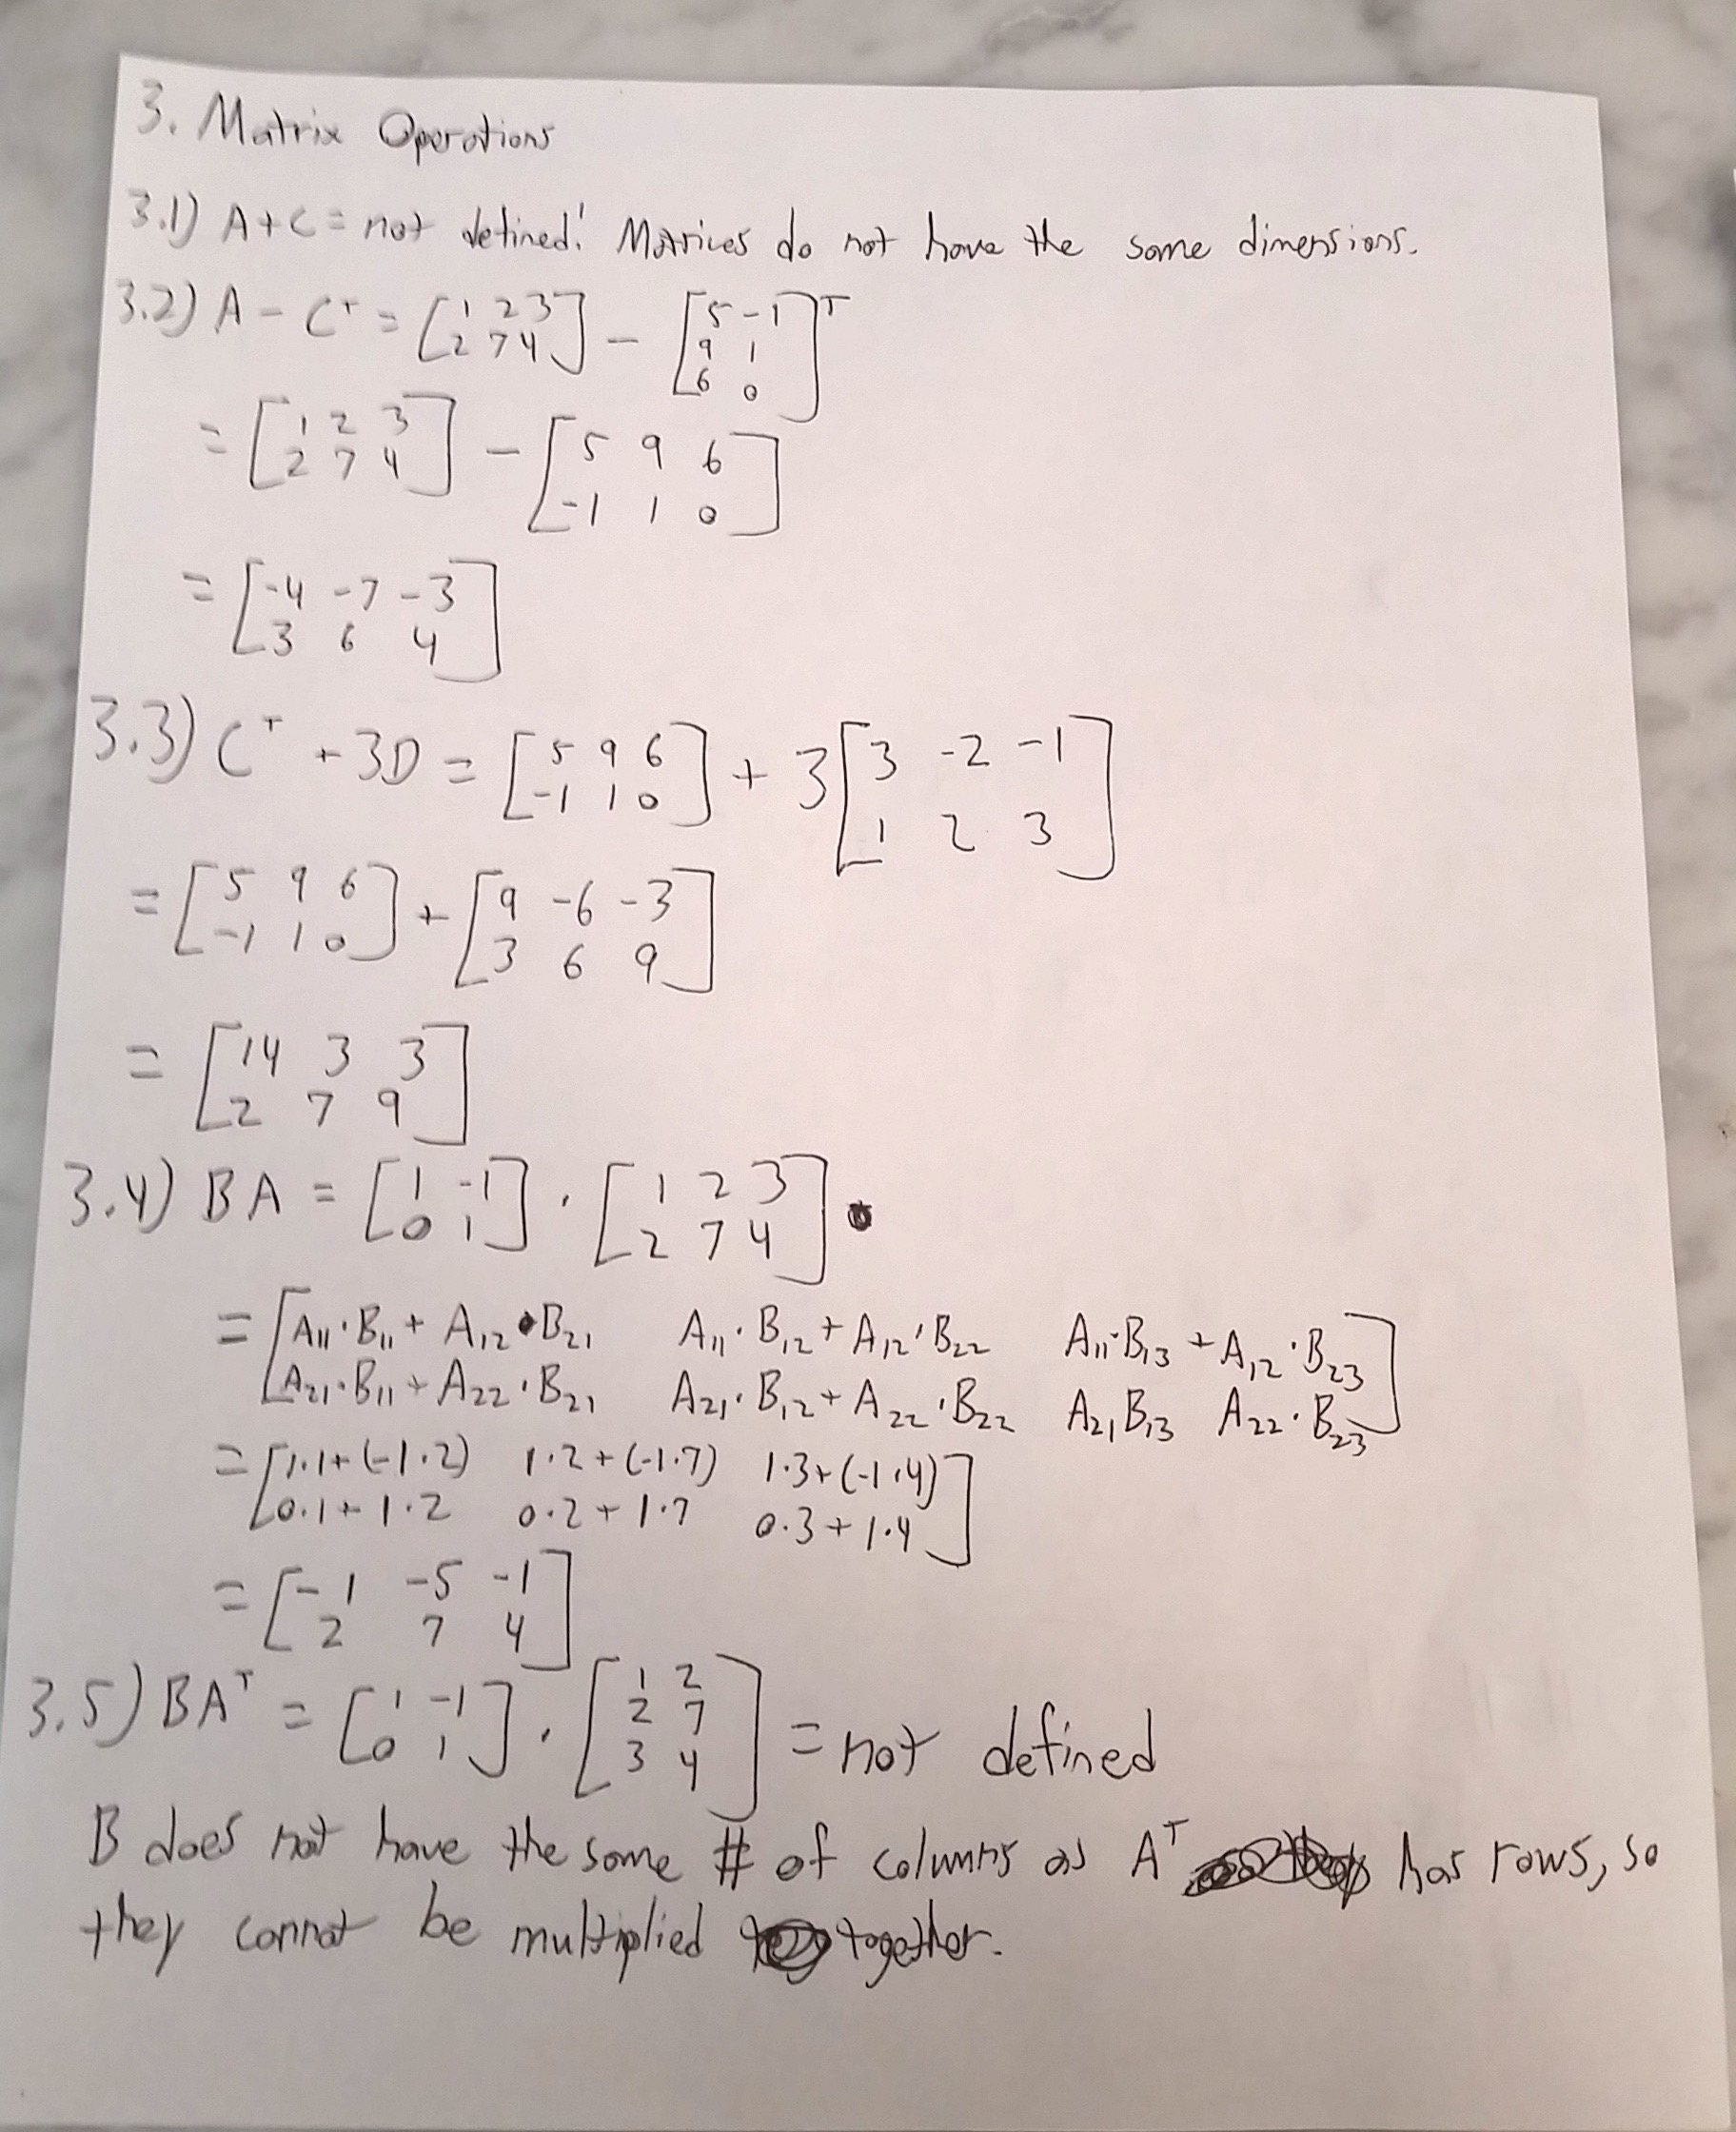 3. Matrix Operations
3.1) A+C = not defined! Matrices do not have the same dimensions.
3.2) A - Cᵀ = [1 2 3; 2 7 4] - [5 -1; 9 1; 6 0]ᵀ
= [1 2 3; 2 7 4] - [5 9 6; -1 1 0]
= [-4 -7 -3; 3 6 4]
3.3) Cᵀ + 3D = [5 9 6; -1 1 0] + 3[3 -2 -1; 1 2 3]
= [5 9 6; -1 1 0] + [9 -6 -3; 3 6 9]
= [14 3 3; 2 7 9]
3.4) BA = [1 -1; 0 1] · [1 2 3; 2 7 4]
= [A₁₁·B₁₁ + A₁₂·B₂₁ A₁₁·B₁₂ + A₁₂·B₂₂ A₁₁·B₁₃ + A₁₂·B₂₃
A₂₁·B₁₁ + A₂₂·B₂₁ A₂₁·B₁₂ + A₂₂·B₂₂ A₂₁B₁₃ A₂₂·B₂₃]
= [1·1+(-1·2) 1·2+(-1·7) 1·3+(-1·4)
0·1+1·2 0·2+1·7 0·3+1·4]
= [-1 -5 -1; 2 7 4]
3.5) BAᵀ = [1 -1; 0 1] · [1 2; 2 7; 3 4] = not defined
B does not have the same # of columns as Aᵀ has rows, so
they cannot be multiplied together.